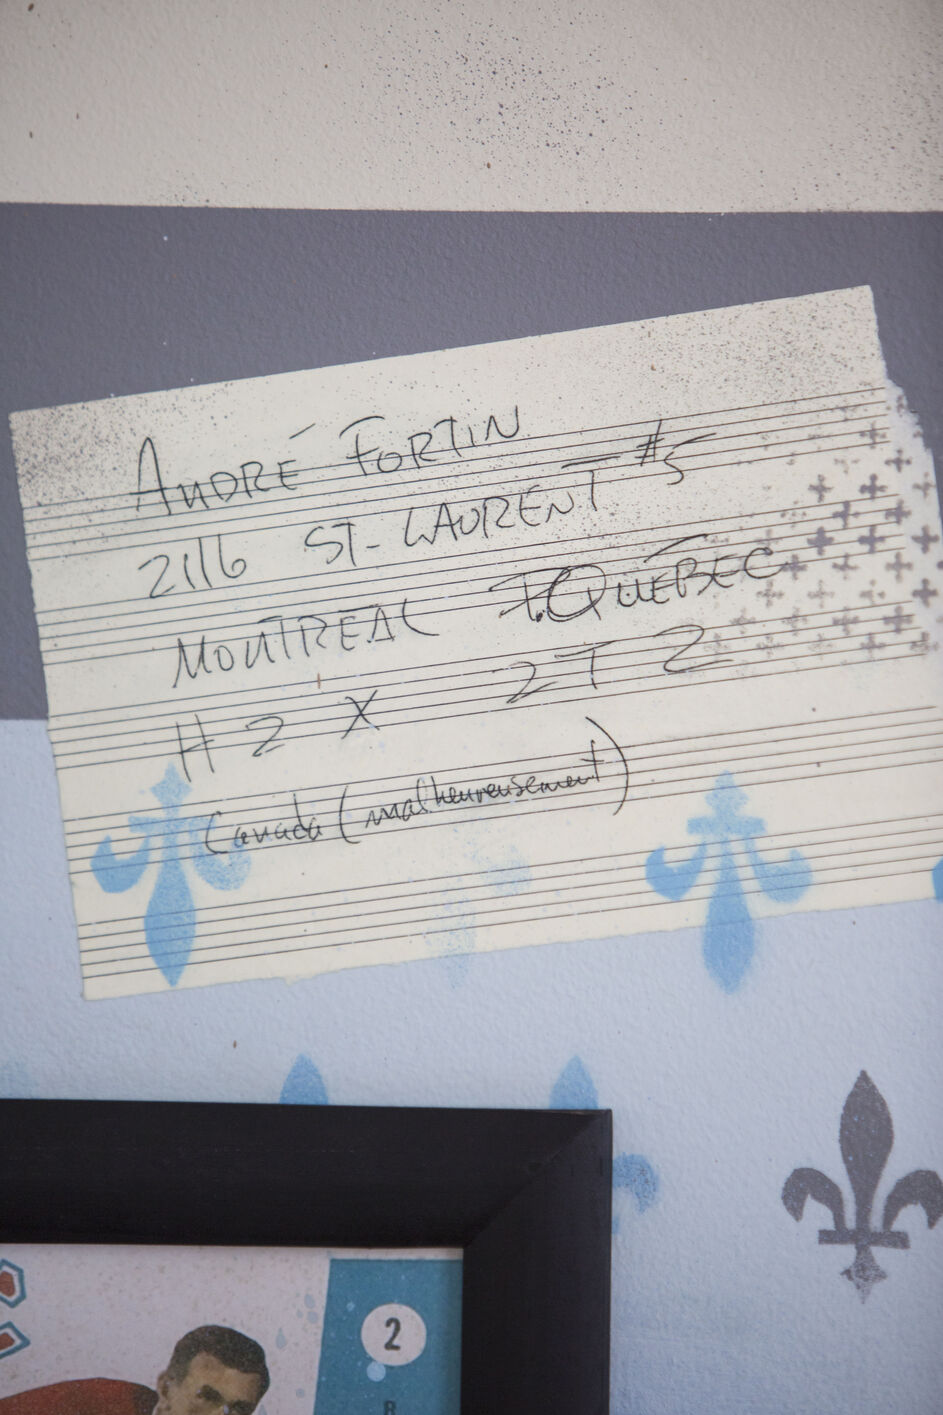 ANDRÉ FORTIN
2116 ST-LAURENT #5
MONTRÉAL QUÉBEC
H2X 2T2
Canada (malheureusement)
2
R